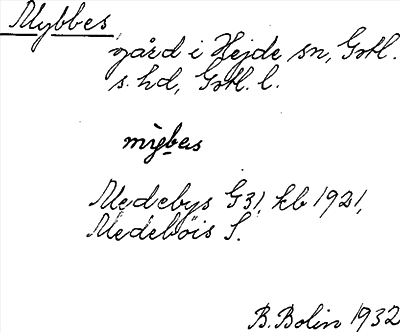 Mybbes,
gård i Hejde sn, Gotl.
s. hd, Gotl. l.
mỳbas
Medebys G 31, kb 1921,
Medeböis S.
B. Bolin 1932